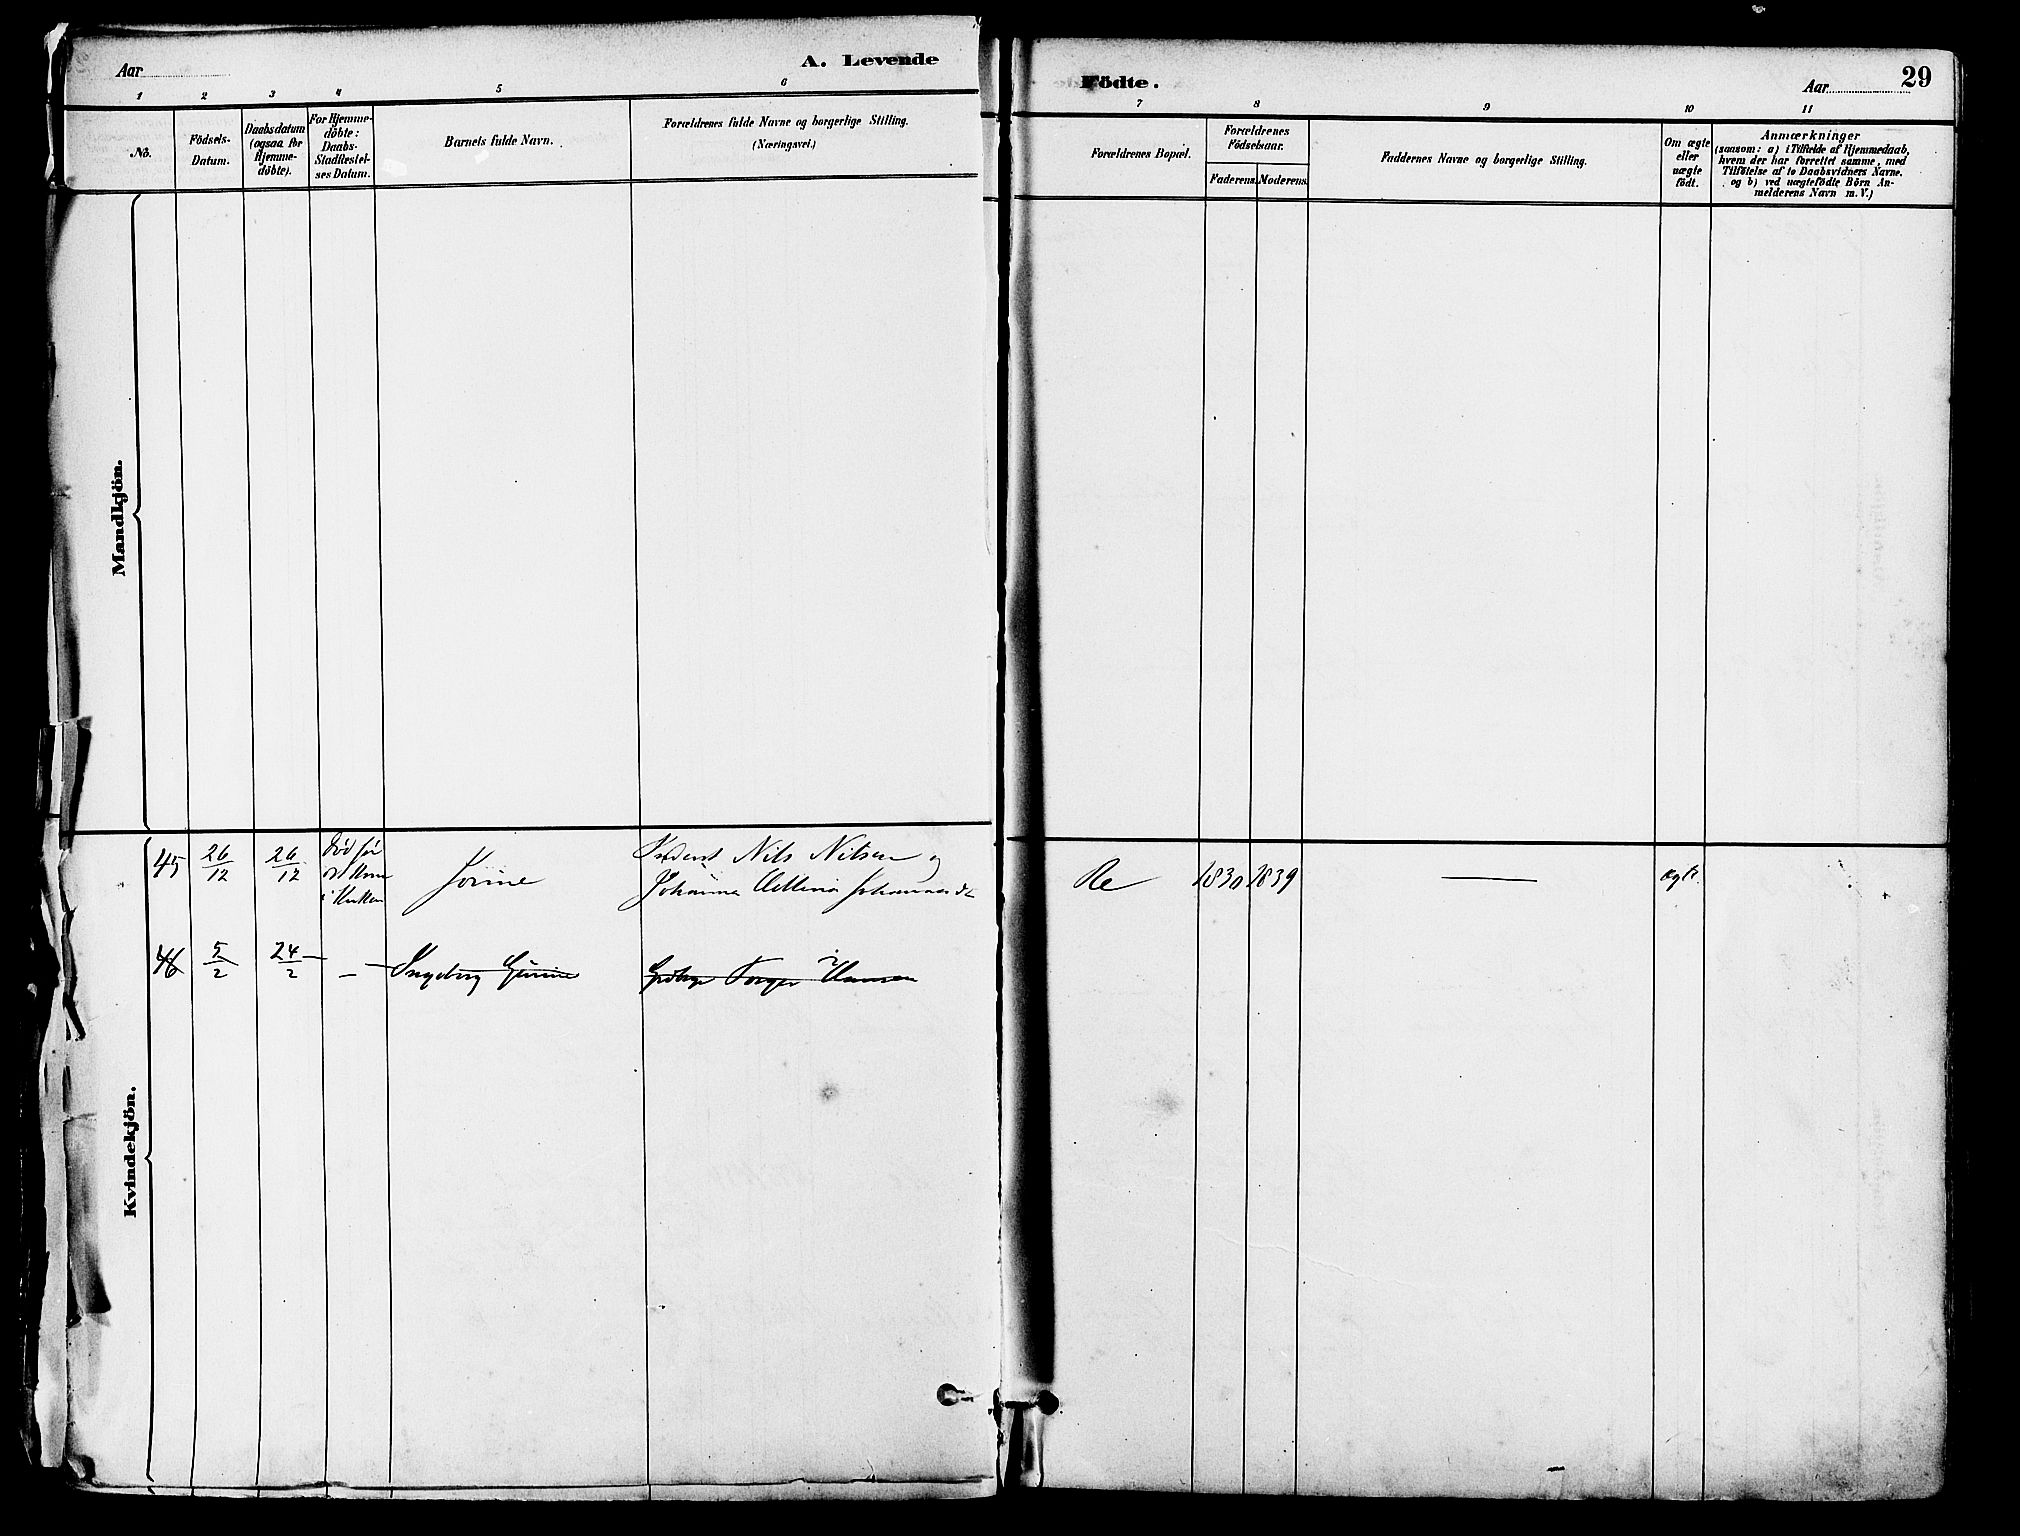 Aar
A. Levende
Födte.
Aar
29
1 2 3 4 5 6
7 8 9 10 11
No.
Födsels-
Datum.
Daabsdatum
(ogsaa for
Hjemme-
döbte).
For Hjemme-
döbte:
Daabs-
Stadfæstel-
ses Datum.
Barnets fulde Navn.
Forældrenes fulde Navne og borgerlige Stilling.
(Næringsvei.)
Forældrenes Bopæl.
Forældrenes
Födselsaar.
Faderens. Moderens.
Faddernes Navne og borgerlige Stilling.
Om ægte
eller
uægte
födt.
Anmærkninger
(saasom: a) i Tilfælde af Hjemmedaab,
hvem der har forrettet samme, med
Tilföielse af to Daabsvidners Navne,
og b) ved uægtefödte Börn An-
melderens Navn m. V.)
Mandkjön.
Kvindekjön.
45 26/12 26/12 Död för
i Kirken
Jorine
Nils Nilsen og
Johanna
Re 1830 1839 — ægte
46 5/2 24/2 — Ingeborg Gurine
Torger Hansen